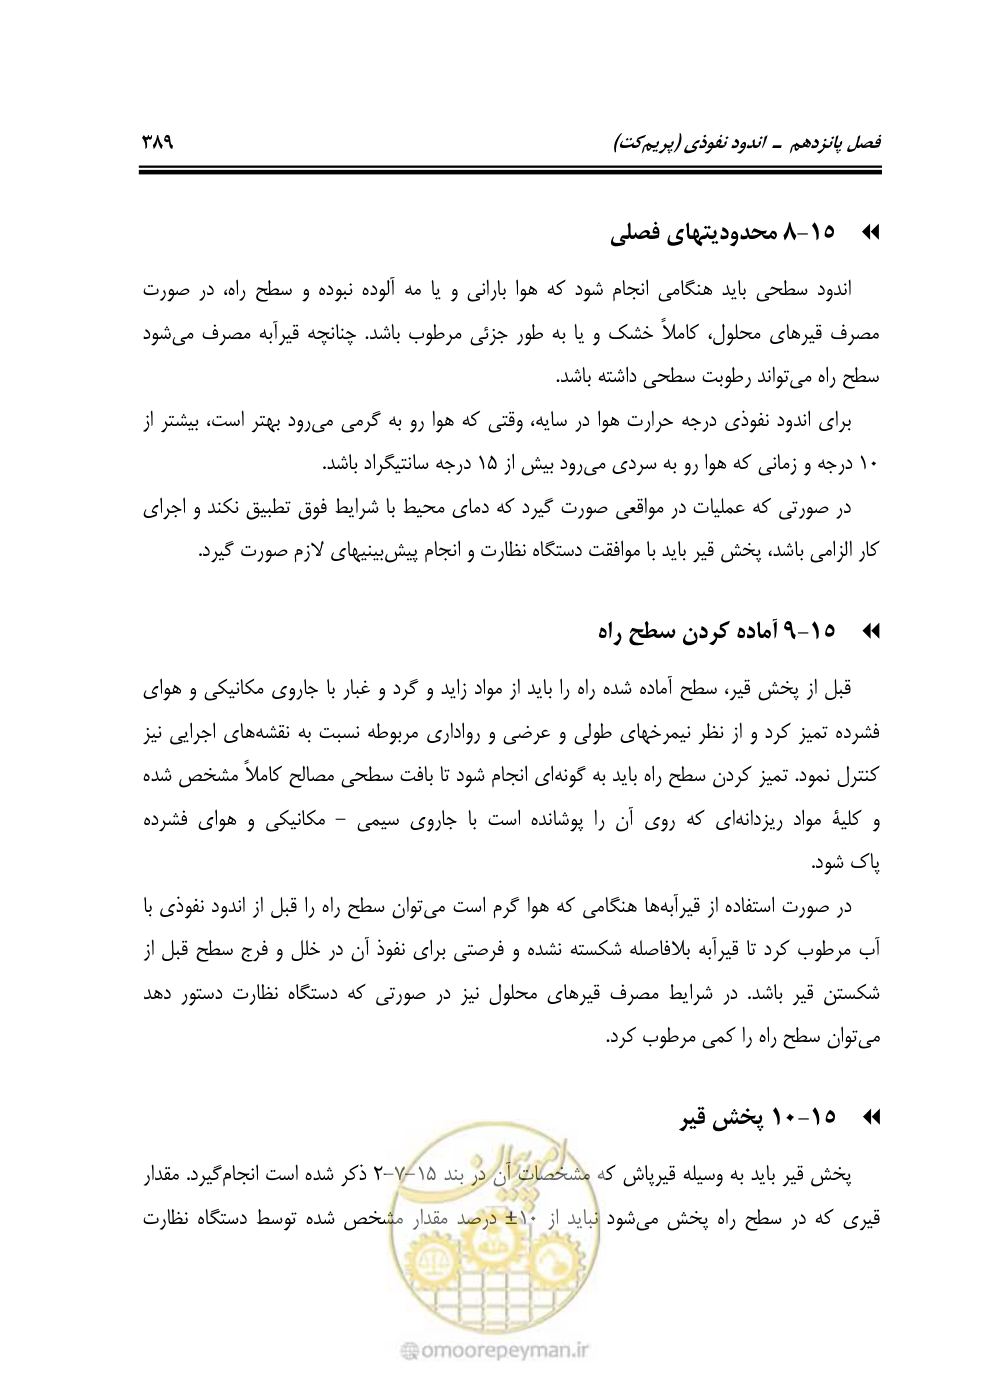 فصل پانزدهم ـ اندود نفوذی (پریم‌کت) ۳۸۹
۱۵-۸ محدودیتهای فصلی
اندود سطحی باید هنگامی انجام شود که هوا بارانی و یا مه آلوده نبوده و سطح راه، در صورت
مصرف قیرهای محلول، کاملاً خشک و یا به طور جزئی مرطوب باشد. چنانچه قیرآبه مصرف می‌شود
سطح راه می‌تواند رطوبت سطحی داشته باشد.
برای اندود نفوذی درجه حرارت هوا در سایه، وقتی که هوا رو به گرمی می‌رود بهتر است، بیشتر از
۱۰ درجه و زمانی که هوا رو به سردی می‌رود بیش از ۱۵ درجه سانتیگراد باشد.
در صورتی که عملیات در مواقعی صورت گیرد که دمای محیط با شرایط فوق تطبیق نکند و اجرای
کار الزامی باشد، پخش قیر باید با موافقت دستگاه نظارت و انجام پیش‌بینیهای لازم صورت گیرد.
۱۵-۹ آماده کردن سطح راه
قبل از پخش قیر، سطح آماده شده راه را باید از مواد زاید و گرد و غبار با جاروی مکانیکی و هوای
فشرده تمیز کرد و از نظر نیمرخهای طولی و عرضی و رواداری مربوطه نسبت به نقشه‌های اجرایی نیز
کنترل نمود. تمیز کردن سطح راه باید به گونه‌ای انجام شود تا بافت سطحی مصالح کاملاً مشخص شده
و کلیهٔ مواد ریزدانه‌ای که روی آن را پوشانده است با جاروی سیمی – مکانیکی و هوای فشرده
پاک شود.
در صورت استفاده از قیرآبه‌ها هنگامی که هوا گرم است می‌توان سطح راه را قبل از اندود نفوذی با
آب مرطوب کرد تا قیرآبه بلافاصله شکسته نشده و فرصتی برای نفوذ آن در خلل و فرج سطح قبل از
شکستن قیر باشد. در شرایط مصرف قیرهای محلول نیز در صورتی که دستگاه نظارت دستور دهد
می‌توان سطح راه را کمی مرطوب کرد.
۱۵-۱۰ پخش قیر
پخش قیر باید به وسیله قیرپاش که مشخصات آن در بند ۱۵-۷-۲ ذکر شده است انجام‌گیرد. مقدار
قیری که در سطح راه پخش می‌شود نباید از ۱۰± درصد مقدار مشخص شده توسط دستگاه نظارت
امور پیمان
omoorepeyman.ir